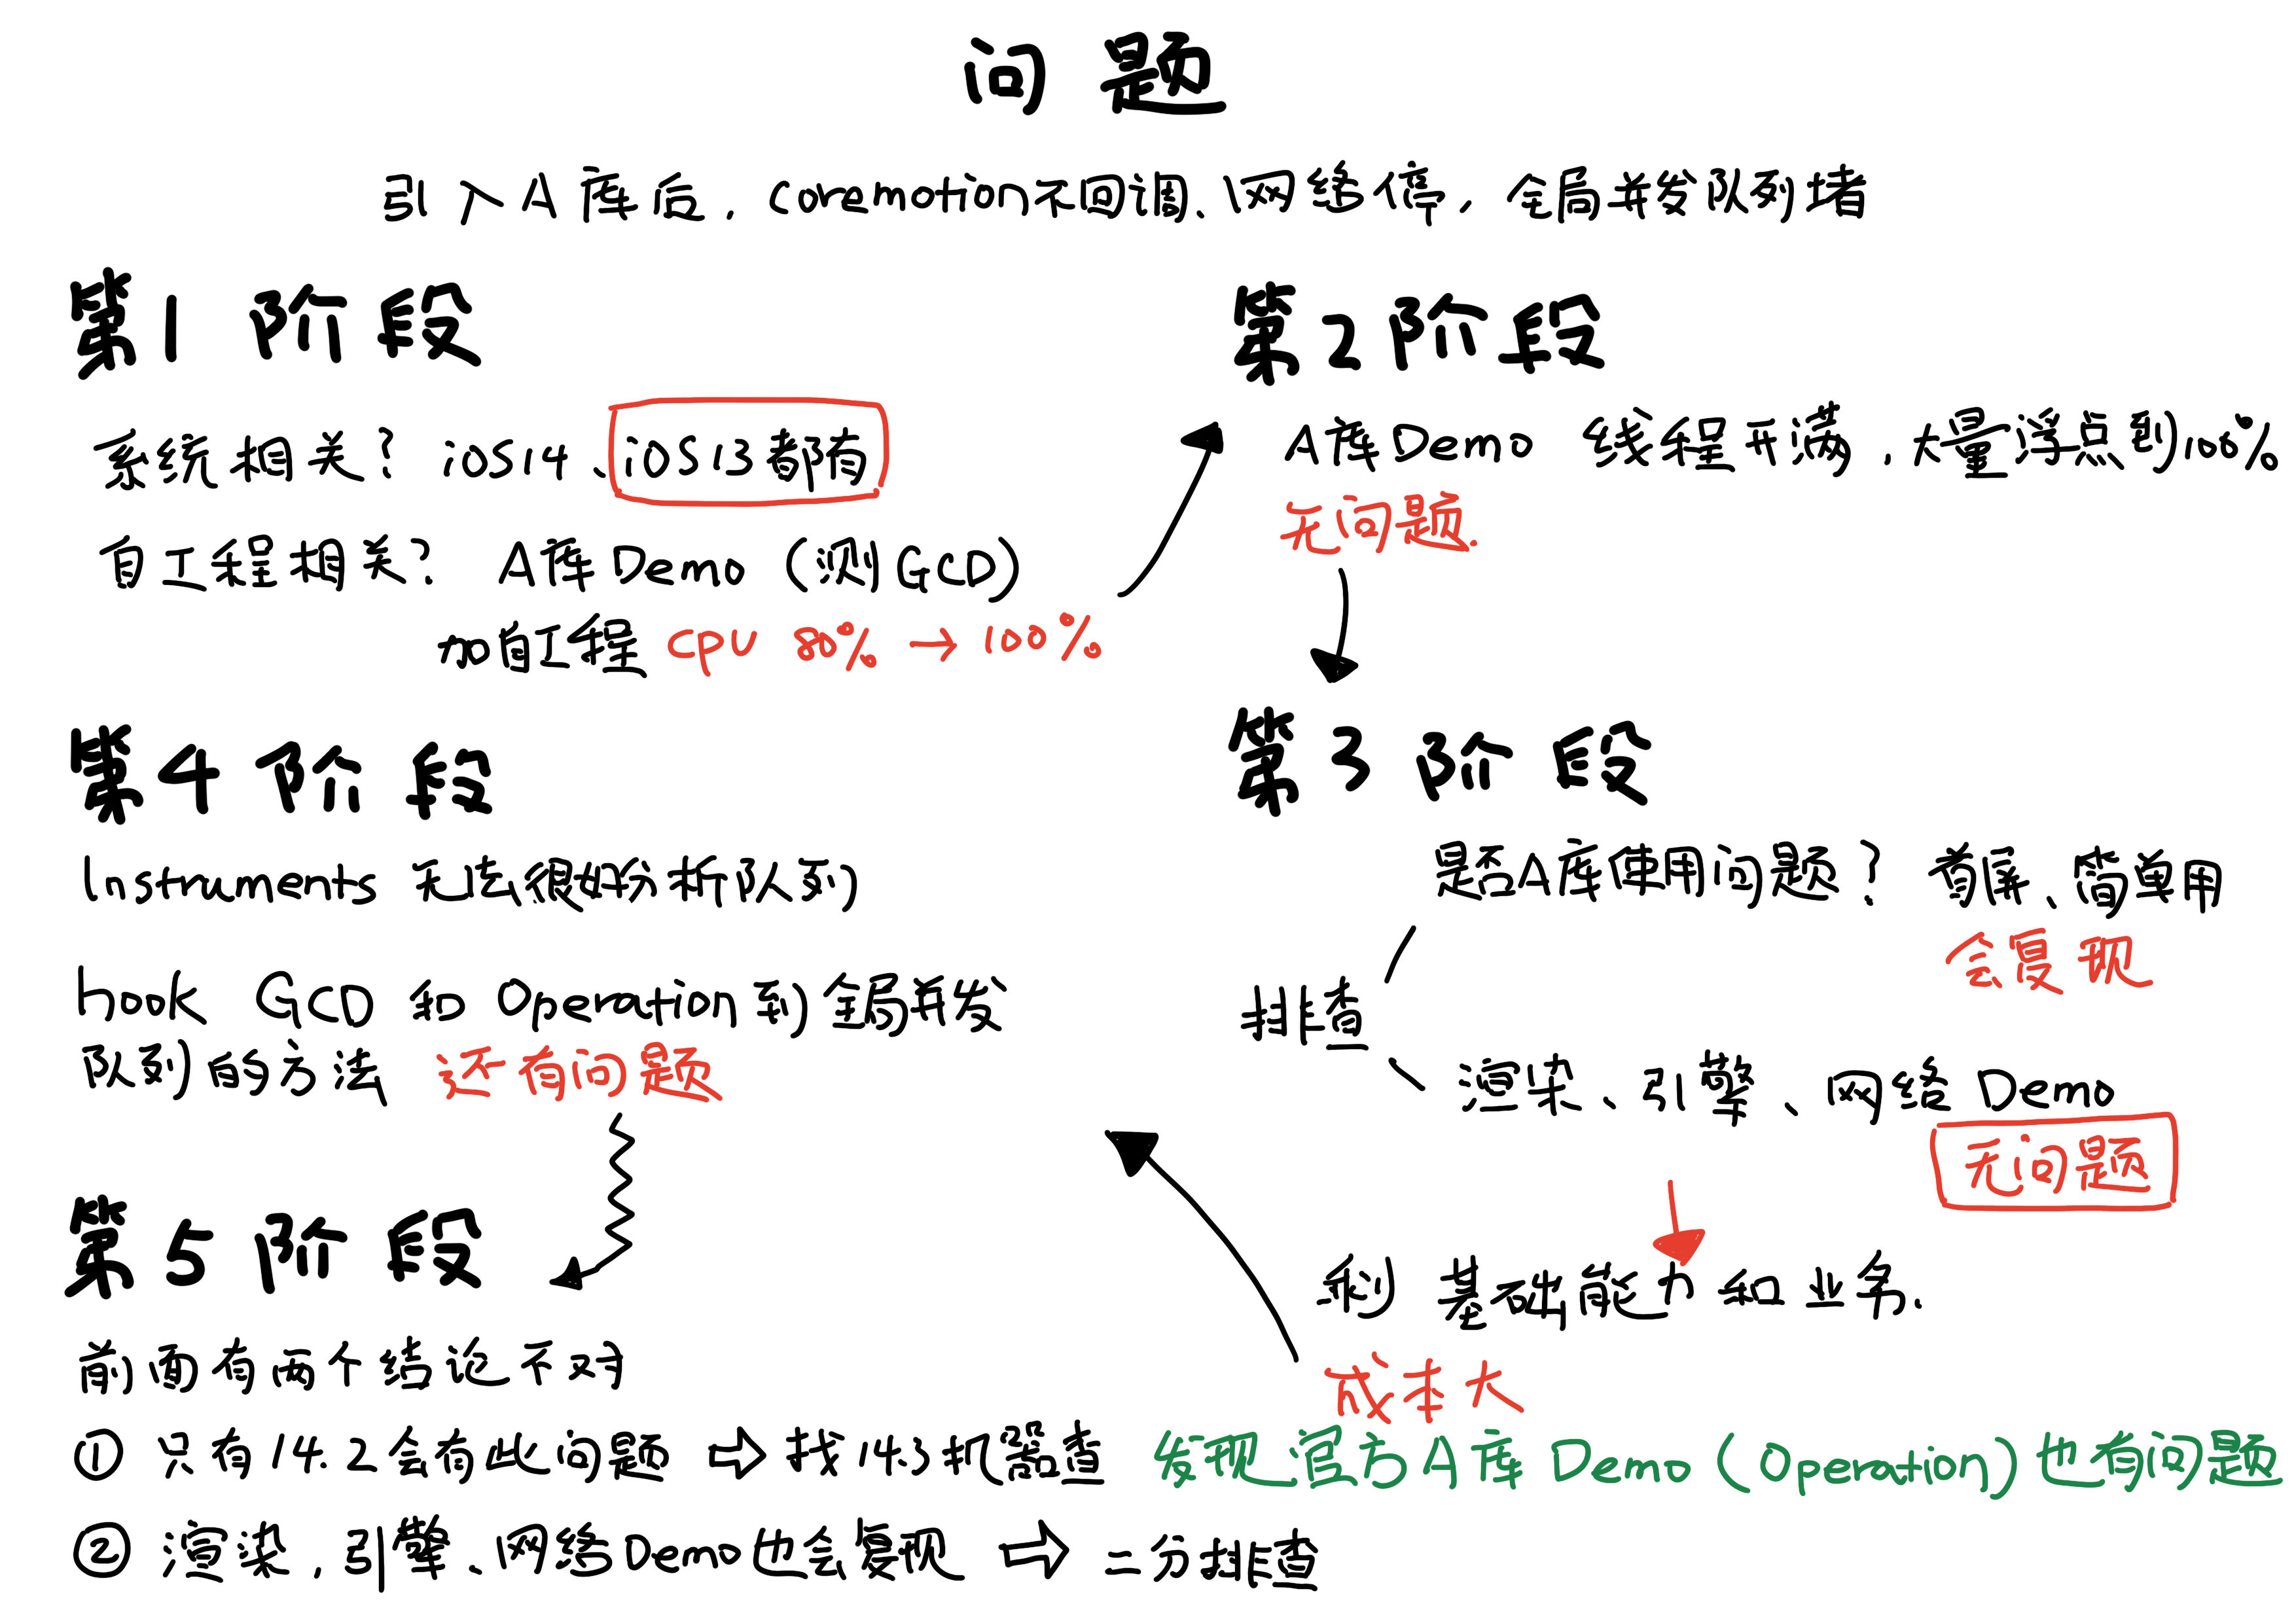 问题
引入A库后，coremotion不回调、网络停，全局并发队列堵
第1阶段
系统相关？ iOS14、iOS13都有
自工程相关？ A库Demo（测GCD）
加自工程 cpu 80% → 100%
第2阶段
A库Demo 线程开满，大量浮点到100%
无问题.
第3阶段
是否A库使用问题？ 首屏、简单用
会复现
排查
渲染、引擎、网络 Demo
无问题
剩 基础能力和业务.
成本大
第4阶段
Instruments 无法很好分析队列
hook GCD 和 Operation到全局并发
队列的方法 还有问题
第5阶段
前面有两个结论不对
① 只有14.2会有此问题 ⇨ 找14.3机器查 发现官方A库 Demo（Operation）也有问题
② 渲染，引擎、网络Demo也会复现 ⇨ 二分排查